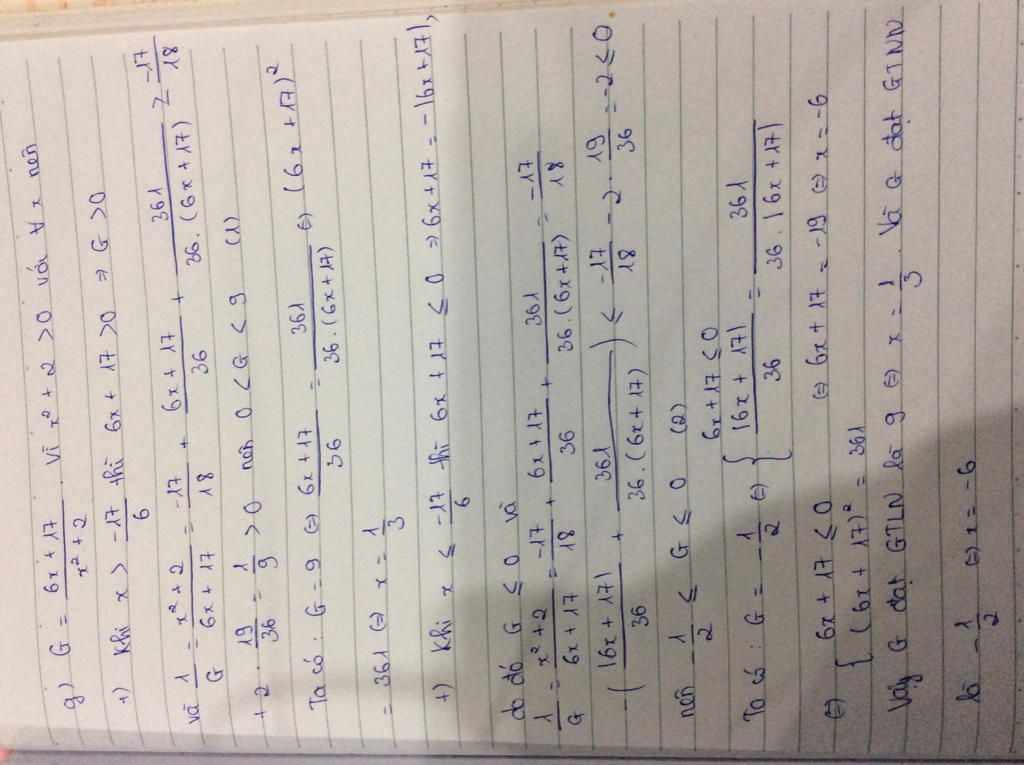 g) G = (6x + 17)/(x² + 2). Vì x² + 2 > 0 với ∀ x nên
+) Khi x > -17/6 thì 6x + 17 > 0 ⇒ G > 0
và 1/G = (x² + 2)/(6x + 17) = -17/18 + (6x + 17)/36 + 361/(36.(6x + 17)) ≥ -17/18
+ 2 . 19/36 = 1/9 > 0 nên 0 < G ≤ 9 (1)
Ta có : G = 9 ⇔ (6x + 17)/36 = 361/(36.(6x + 17)) ⇔ (6x + 17)²
= 361 ⇔ x = 1/3
+) Khi x ≤ -17/6 thì 6x + 17 ≤ 0 ⇒ 6x + 17 = -|6x + 17|,
do đó G ≤ 0 và
1/G = (x² + 2)/(6x + 17) = -17/18 + (6x + 17)/36 + 361/(36.(6x + 17)) = -17/18
-(|6x + 17|/36 + 361/(36.(6x + 17))) ≤ -17/18 - 2 . 19/36 = -2 ≤ 0
nên -1/2 ≤ G ≤ 0 (2)
Ta có : G = -1/2 ⇔ { 6x + 17 ≤ 0
|6x + 17|/36 = 361/(36.|6x + 17|)
⇔ { 6x + 17 ≤ 0
(6x + 17)² = 361 ⇔ 6x + 17 = -19 ⇔ x = -6
Vậy G đạt GTLN là 9 ⇔ x = 1/3. Và G đạt GTNN
là -1/2 ⇔ x = -6